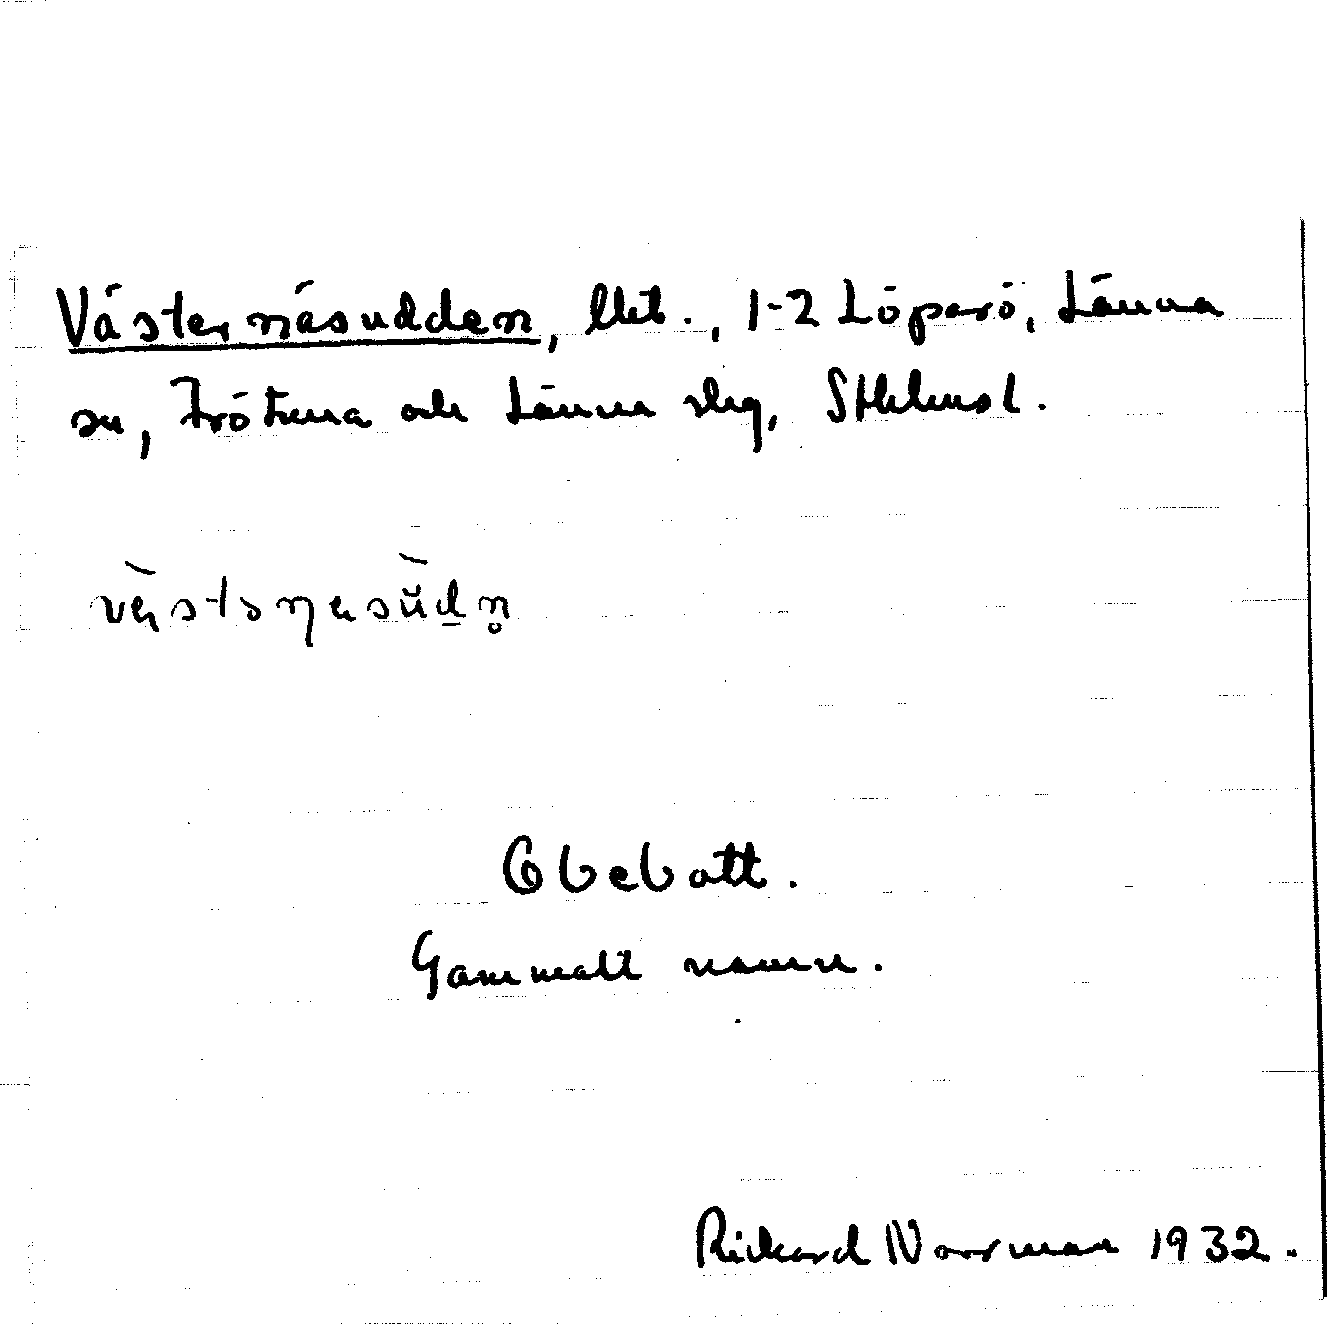 Västernäsudden, lht., 1-2 Löparö, Länna
sn, Frötuna och Länna slg, Sthlmsl.
Obebott.
Gammalt namn.
Rickard Norrman 1932.